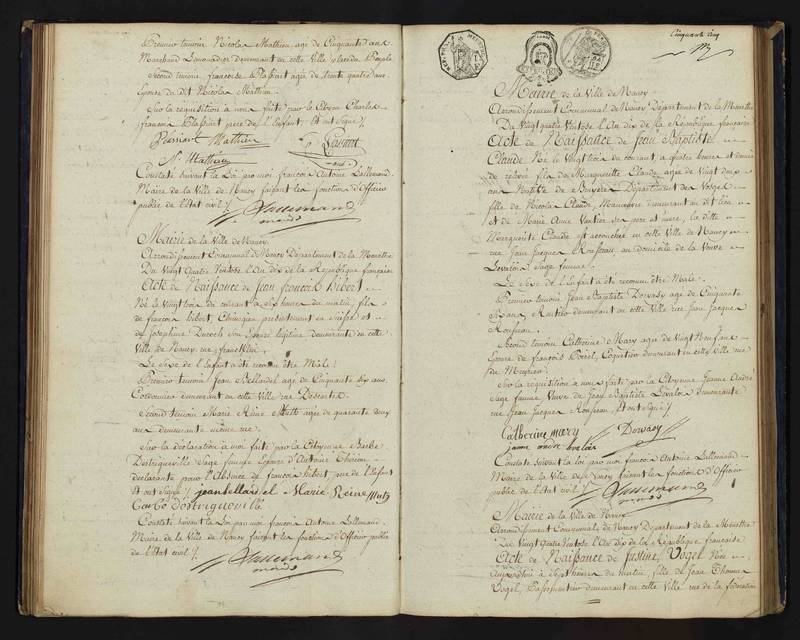 Premier temoin Nicolas Mathieu, agé de Cinquante ans
Marchand Limonadier demeurant en cette Ville place du Peuple
Second temoin francoise Plassiart agée de trente quatre ans
Epouse du dit Nicolas Mathieu.
Sur la requisition à nous faite par le Citoyen Charles
francois Plassiart pere de l'Enfant. Et ont signé /.
Plassiart Mathieu
N. Mathieu
Constaté suivant la Loi par moi francois Antoine Lallemand
Maire de la Ville de Nancy faisant les fonctions d'Officier
public de l'Etat civil /.
Lallemand
Mairie de la Ville de Nancy.
Arrondissement Communal de Nancy Département de la Meurthe
Du Vingt quatre Ventose l'An dix de la République française
Acte de Naissance de Jean francois hibert
Né le Vingt trois du courant à heures du matin, fils
de francois hibert, Chirurgien presentement en Suisse et
de Josephine son Epouse légitime demeurante en cette
Ville de Nancy rue franklin.
Le Sexe de l'Enfant a été reconnu être Mâle.
Premier temoin Jean Bellardel agé de Cinquante six ans
Cordonnier demeurant en cette Ville rue Descartes.
Second temoin Marie Reine Mutz agée de quarante deux
ans demeurante même rue.
Sur la déclaration à moi faite par la Citoyenne Barbe
Destrigneville Sage femme Epouse d'Antoine
déclarante pour l'absence de francois hibert pere de l'Enfant
Et ont signé /. jean bellardel Marie Reine Mutz
Barbe destrigneville
Constaté suivant la Loi par moi francois Antoine Lallemand
Maire de la Ville de Nancy faisant les fonctions d'Officier public
de l'Etat civil /.
Lallemand
Cinquante cinq
Mairie de la Ville de Nancy
Arrondissement Communal de Nancy Département de la Meurthe
Du Vingt quatre Ventose l'An dix de la République française
Acte de Naissance de Jean Baptiste
Claude Né le Vingt trois du courant, à quatre heures et demie
de relevée fils de Marguerite Claude agée de Vingt deux
ans Native de Bruyere Département des Vosges
fille de Nicolas Claude, Manoeuvre demeurant au dit lieu
et de Marie Anne ses pere et mere, la ditte
Marguerite Claude est accouchée en cette Ville de Nancy
rue Jean Jacques Rousseau au domicile de la Veuve
Levaloir Sage femme.
Le Sexe de l'Enfant a été reconnu être Male.
Premier temoin Jean Baptiste Dorvasy agé de Cinquante
ans, Rentier demeurant en cette Ville rue Jean Jacques
Rousseau.
Second temoin Catherine Mary agée de Vingt Neuf ans
Epouse de francois Coquetier demeurant en cette Ville rue
du Meurier.
Sur la requisition à nous faite par la Citoyenne Jeanne André
Sage femme Veuve de Jean Baptiste Levaloir demeurante
rue Jean Jacques Rousseau, Et ont signé /.
Catherine mary Dorvasy
Constaté suivant la loi par moi francois Antoine Lallemand
Maire de la Ville de Nancy faisant les fonctions d'Officier
public de l'Etat civil /.
Lallemand
Mairie de la Ville de Nancy
Arrondissement Communal de Nancy Département de la Meurthe
Du Vingt quatre Ventose l'An dix de la République française
Acte de Naissance de Justine Vogel Née
Aujourd'hui à Sept heures du matin, fille de Jean Thomas
Vogel, Passementier demeurant en cette Ville rue de la fédération